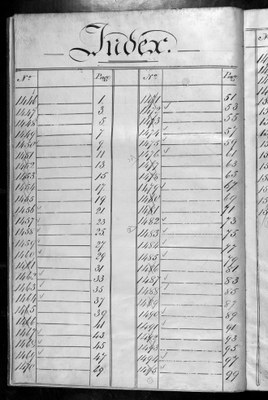 Index.
No. Page No. Page
1446 1 1471 51
1447 3 1472 53
1448 5 1473 55
1449 7 1474 57
1450 9 1475 59
1451 11 1476 61
1452 13 1477 63
1453 15 1478 65
1454 17 1479 67
1455 19 1480 69
1456 21 1481 71
1457 23 1482 73
1458 25 1483 75
1459 27 1484 77
1460 29 1485 79
1461 31 1486 81
1462 33 1487 83
1463 35 1488 85
1464 37 1489 87
1465 39 1490 89
1466 41 1491 91
1467 43 1492 93
1468 45 1493 95
1469 47 1494 97
1470 49 1495 99